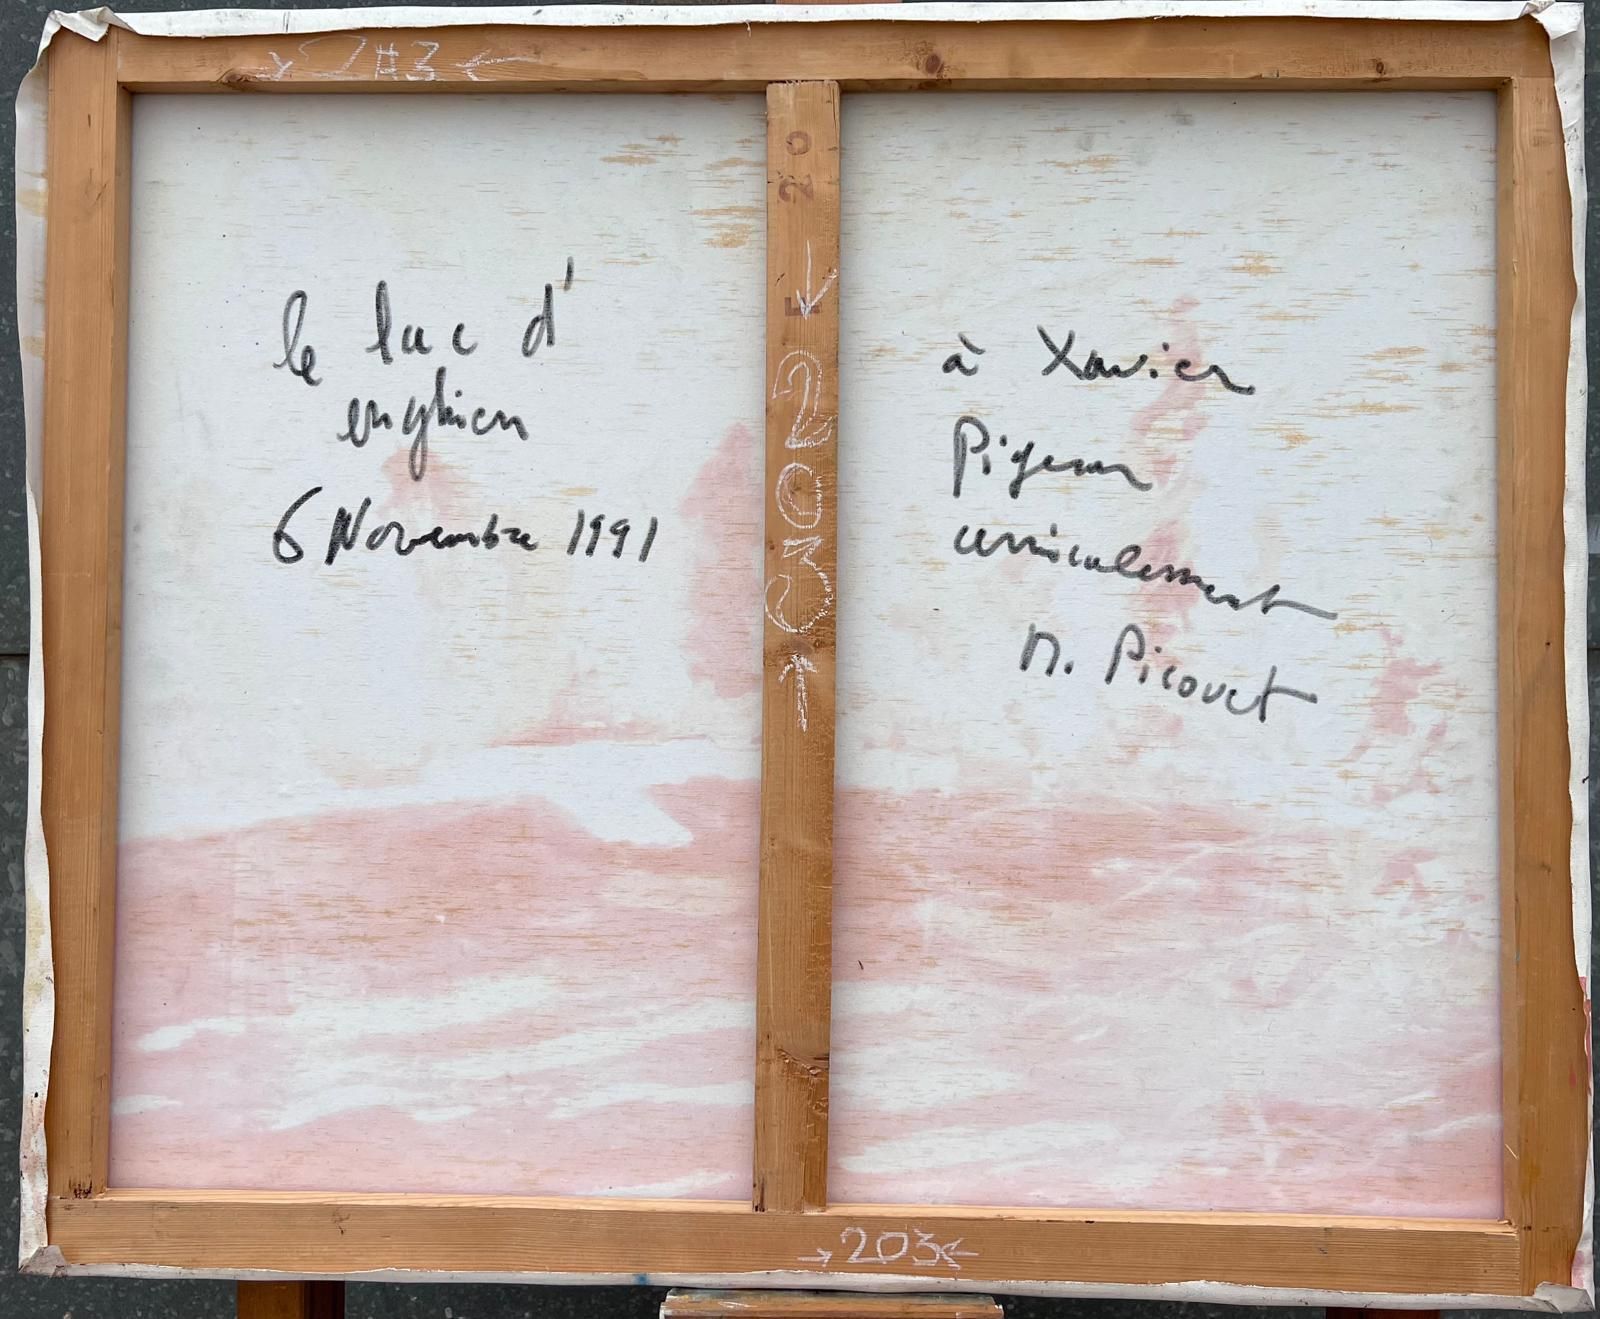 203
20
F
203
le lac d'
enghien
6 Novembre 1991
à Xavier
Pigeon
amicalement
M. Picouet
203